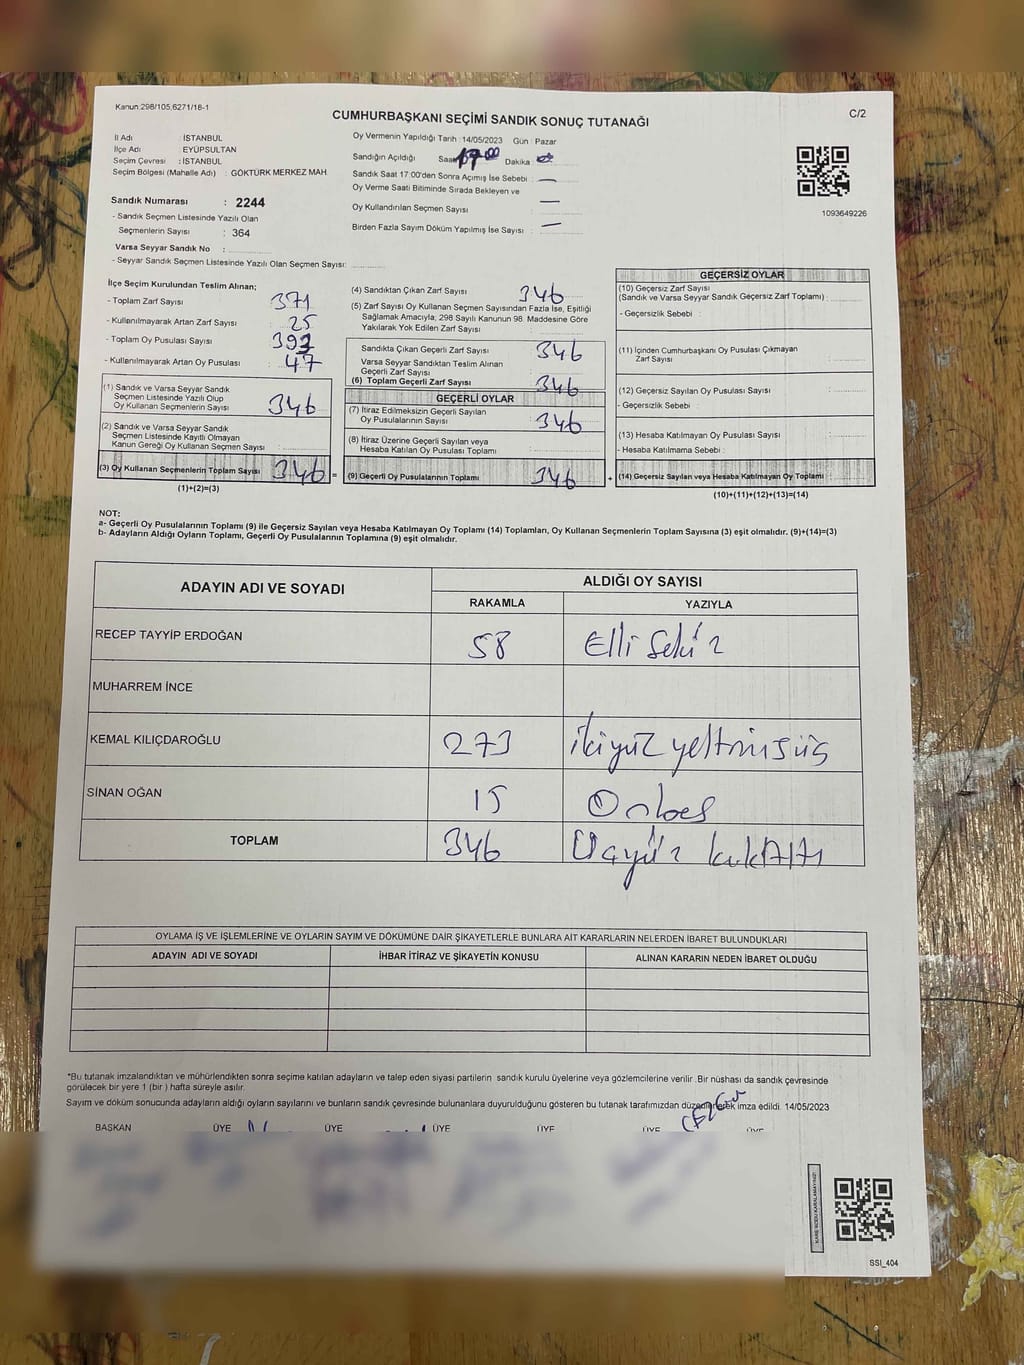 Kanun:298/105,6271/18-1
CUMHURBAŞKANI SEÇİMİ SANDIK SONUÇ TUTANAĞI
C/2
İl Adı : İSTANBUL
İlçe Adı : EYÜPSULTAN
Seçim Çevresi : İSTANBUL
Seçim Bölgesi (Mahalle Adı) : GÖKTÜRK MERKEZ MAH
Sandık Numarası : 2244
- Sandık Seçmen Listesinde Yazılı Olan
Seçmenlerin Sayısı : 364
Varsa Seyyar Sandık No :
- Seyyar Sandık Seçmen Listesinde Yazılı Olan Seçmen Sayısı:
Oy Vermenin Yapıldığı Tarih :14/05/2023 Gün : Pazar
Sandığın Açıldığı Saat 17:00 Dakika :
Sandık Saat 17:00'den Sonra Açımış İse Sebebi : —
Oy Verme Saati Bitiminde Sırada Bekleyen ve
Oy Kullandırılan Seçmen Sayısı —
Birden Fazla Sayım Döküm Yapılmış İse Sayısı : —
1093649226
İlçe Seçim Kurulundan Teslim Alınan;
- Toplam Zarf Sayısı 371
- Kullanılmayarak Artan Zarf Sayısı : 25
- Toplam Oy Pusulası Sayısı : 393
- Kullanılmayarak Artan Oy Pusulası : 47
(1) Sandık ve Varsa Seyyar Sandık
Seçmen Listesinde Yazılı Olup
Oy Kullanan Seçmenlerin Sayısı : 346
(2) Sandık ve Varsa Seyyar Sandık
Seçmen Listesinde Kayıtlı Olmayan
Kanun Gereği Oy Kullanan Seçmen Sayısı :
(3) Oy Kullanan Seçmenlerin Toplam Sayısı 346 =
(1)+(2)=(3)
(4) Sandıktan Çıkan Zarf Sayısı 346
(5) Zarf Sayısı Oy Kullanan Seçmen Sayısından Fazla İse, Eşitliği
Sağlamak Amacıyla, 298 Sayılı Kanunun 98. Maddesine Göre
Yakılarak Yok Edilen Zarf Sayısı :
Sandıkta Çıkan Geçerli Zarf Sayısı 346
Varsa Seyyar Sandıktan Teslim Alınan
Geçerli Zarf Sayısı
(6) Toplam Geçerli Zarf Sayısı 346
GEÇERLİ OYLAR
(7) İtiraz Edilmeksizin Geçerli Sayılan
Oy Pusulalarının Sayısı : 346
(8) İtiraz Üzerine Geçerli Sayılan veya
Hesaba Katılan Oy Pusulası Toplamı :
(9) Geçerli Oy Pusulalarının Toplamı 346 +
GEÇERSİZ OYLAR
(10) Geçersiz Zarf Sayısı
(Sandık ve Varsa Seyyar Sandık Geçersiz Zarf Toplamı) :
- Geçersizlik Sebebi :
(11) İçinden Cumhurbaşkanı Oy Pusulası Çıkmayan
Zarf Sayısı :
(12) Geçersiz Sayılan Oy Pusulası Sayısı :
- Geçersizlik Sebebi :
(13) Hesaba Katılmayan Oy Pusulası Sayısı :
- Hesaba Katılmama Sebebi :
(14) Geçersiz Sayılan veya Hesaba Katılmayan Oy Toplamı :
(10)+(11)+(12)+(13)=(14)
NOT:
a- Geçerli Oy Pusulalarının Toplamı (9) ile Geçersiz Sayılan veya Hesaba Katılmayan Oy Toplamı (14) Toplamları, Oy Kullanan Seçmenlerin Toplam Sayısına (3) eşit olmalıdır. (9)+(14)=(3)
b- Adayların Aldığı Oyların Toplamı, Geçerli Oy Pusulalarının Toplamına (9) eşit olmalıdır.
ADAYIN ADI VE SOYADI ALDIĞI OY SAYISI
RAKAMLA YAZIYLA
RECEP TAYYİP ERDOĞAN 58 Elli Sekiz
MUHARREM İNCE
KEMAL KILIÇDAROĞLU 273 ikiyüz yetmişüç
SİNAN OĞAN 15 Onbeş
TOPLAM 346 Üçyüz kırkaltı
OYLAMA İŞ VE İŞLEMLERİNE VE OYLARIN SAYIM VE DÖKÜMÜNE DAİR ŞİKAYETLERLE BUNLARA AİT KARARLARIN NELERDEN İBARET BULUNDUKLARI
ADAYIN ADI VE SOYADI İHBAR İTİRAZ VE ŞİKAYETİN KONUSU ALINAN KARARIN NEDEN İBARET OLDUĞU
*Bu tutanak imzalandıktan ve mühürlendikten sonra seçime katılan adayların ve talep eden siyasi partilerin sandık kurulu üyelerine veya gözlemcilerine verilir. Bir nüshası da sandık çevresinde
görülecek bir yere 1 (bir) hafta süreyle asılır.
Sayım ve döküm sonucunda adayların aldığı oyların sayılarını ve bunların sandık çevresinde bulunanlara duyurulduğunu gösteren bu tutanak tarafımızdan düzenlenerek imza edildi. 14/05/2023
BAŞKAN ÜYE ÜYE ÜYE ÜYE ÜYE ÜYE
SSI_404